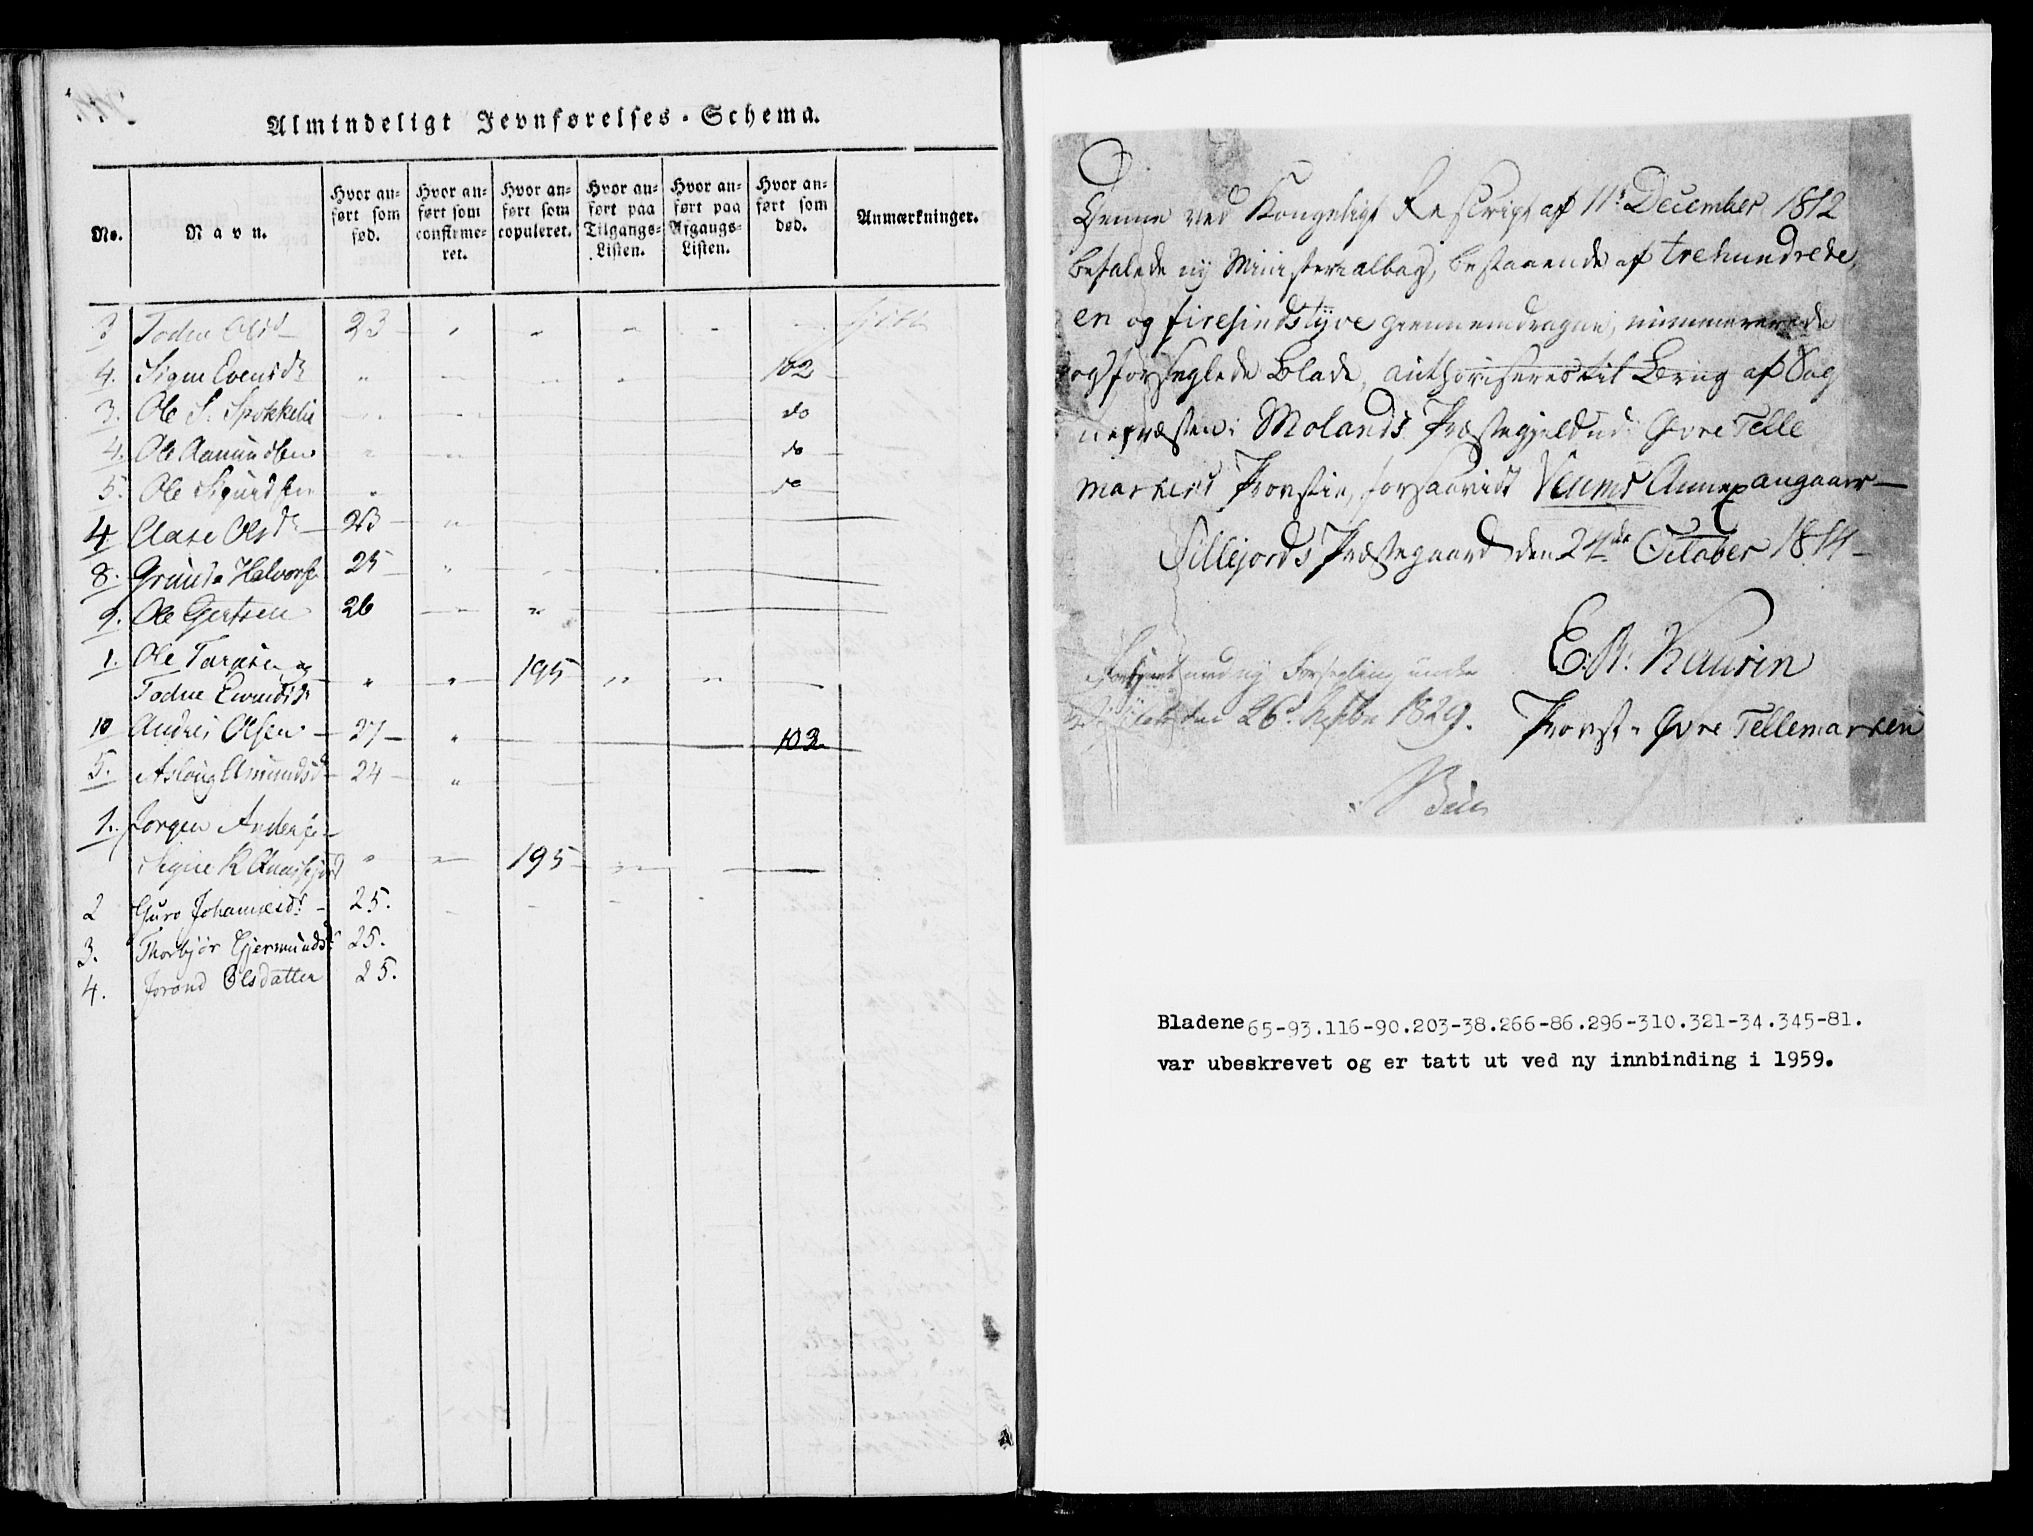 Almindeligt Jevnførelses-Schema.
No. Navn. Hvor anført som fød. Hvor anført som confirmeret. Hvor anført som copuleret. Hvor anført paa Tilgangs-Listen. Hvor anført paa Afgangs-Listen. Hvor anført som død. Anmærkninger.
3 Todne Olsd 23
4. Signe Evensdr 102
3. Ole S. Spokkelie do
4. Ole Aamundsen do
5. Ole Sigurdsen do
4. Aase Olsdr 23
8. Gunild Halvorsd 25
9. Ole Gjertsen 26
1. Ole Tarjesen og 195
Todne Evensdr
10 Andres Olsen 27 103
5. Aslaug Amundsd 24
1. Jørgen Andersen
Signe K 195
2 Guro Johannesdr 25.
3. Thorbjør Gjermundsd 25.
4. Jorond Olsdatter 25.
Denne ved Kongeligt Rescript af 11t December 1812
befalede ny Ministerialbog, bestaaende af trehundrede,
en og firesindstyve giennemdragne, nummererede
og forseglede Blade, authoriseres til Brug af Sog
nepræsten i Molands Præstegjeld udi Øvre Telle
markens Provstie, forsaavidt Veums Annex angaaer
Sillejords Præstegaard den 24de October 1814
E. A. Kaurin
Provst i Øvre Tellemarken
Forsynet med ny Forsegling under
den 26d Septbr 1829.
Bladene 65-93.116-90.203-38.266-86.296-310.321-34.345-81.
var ubeskrevet og er tatt ut ved ny innbinding i 1959.